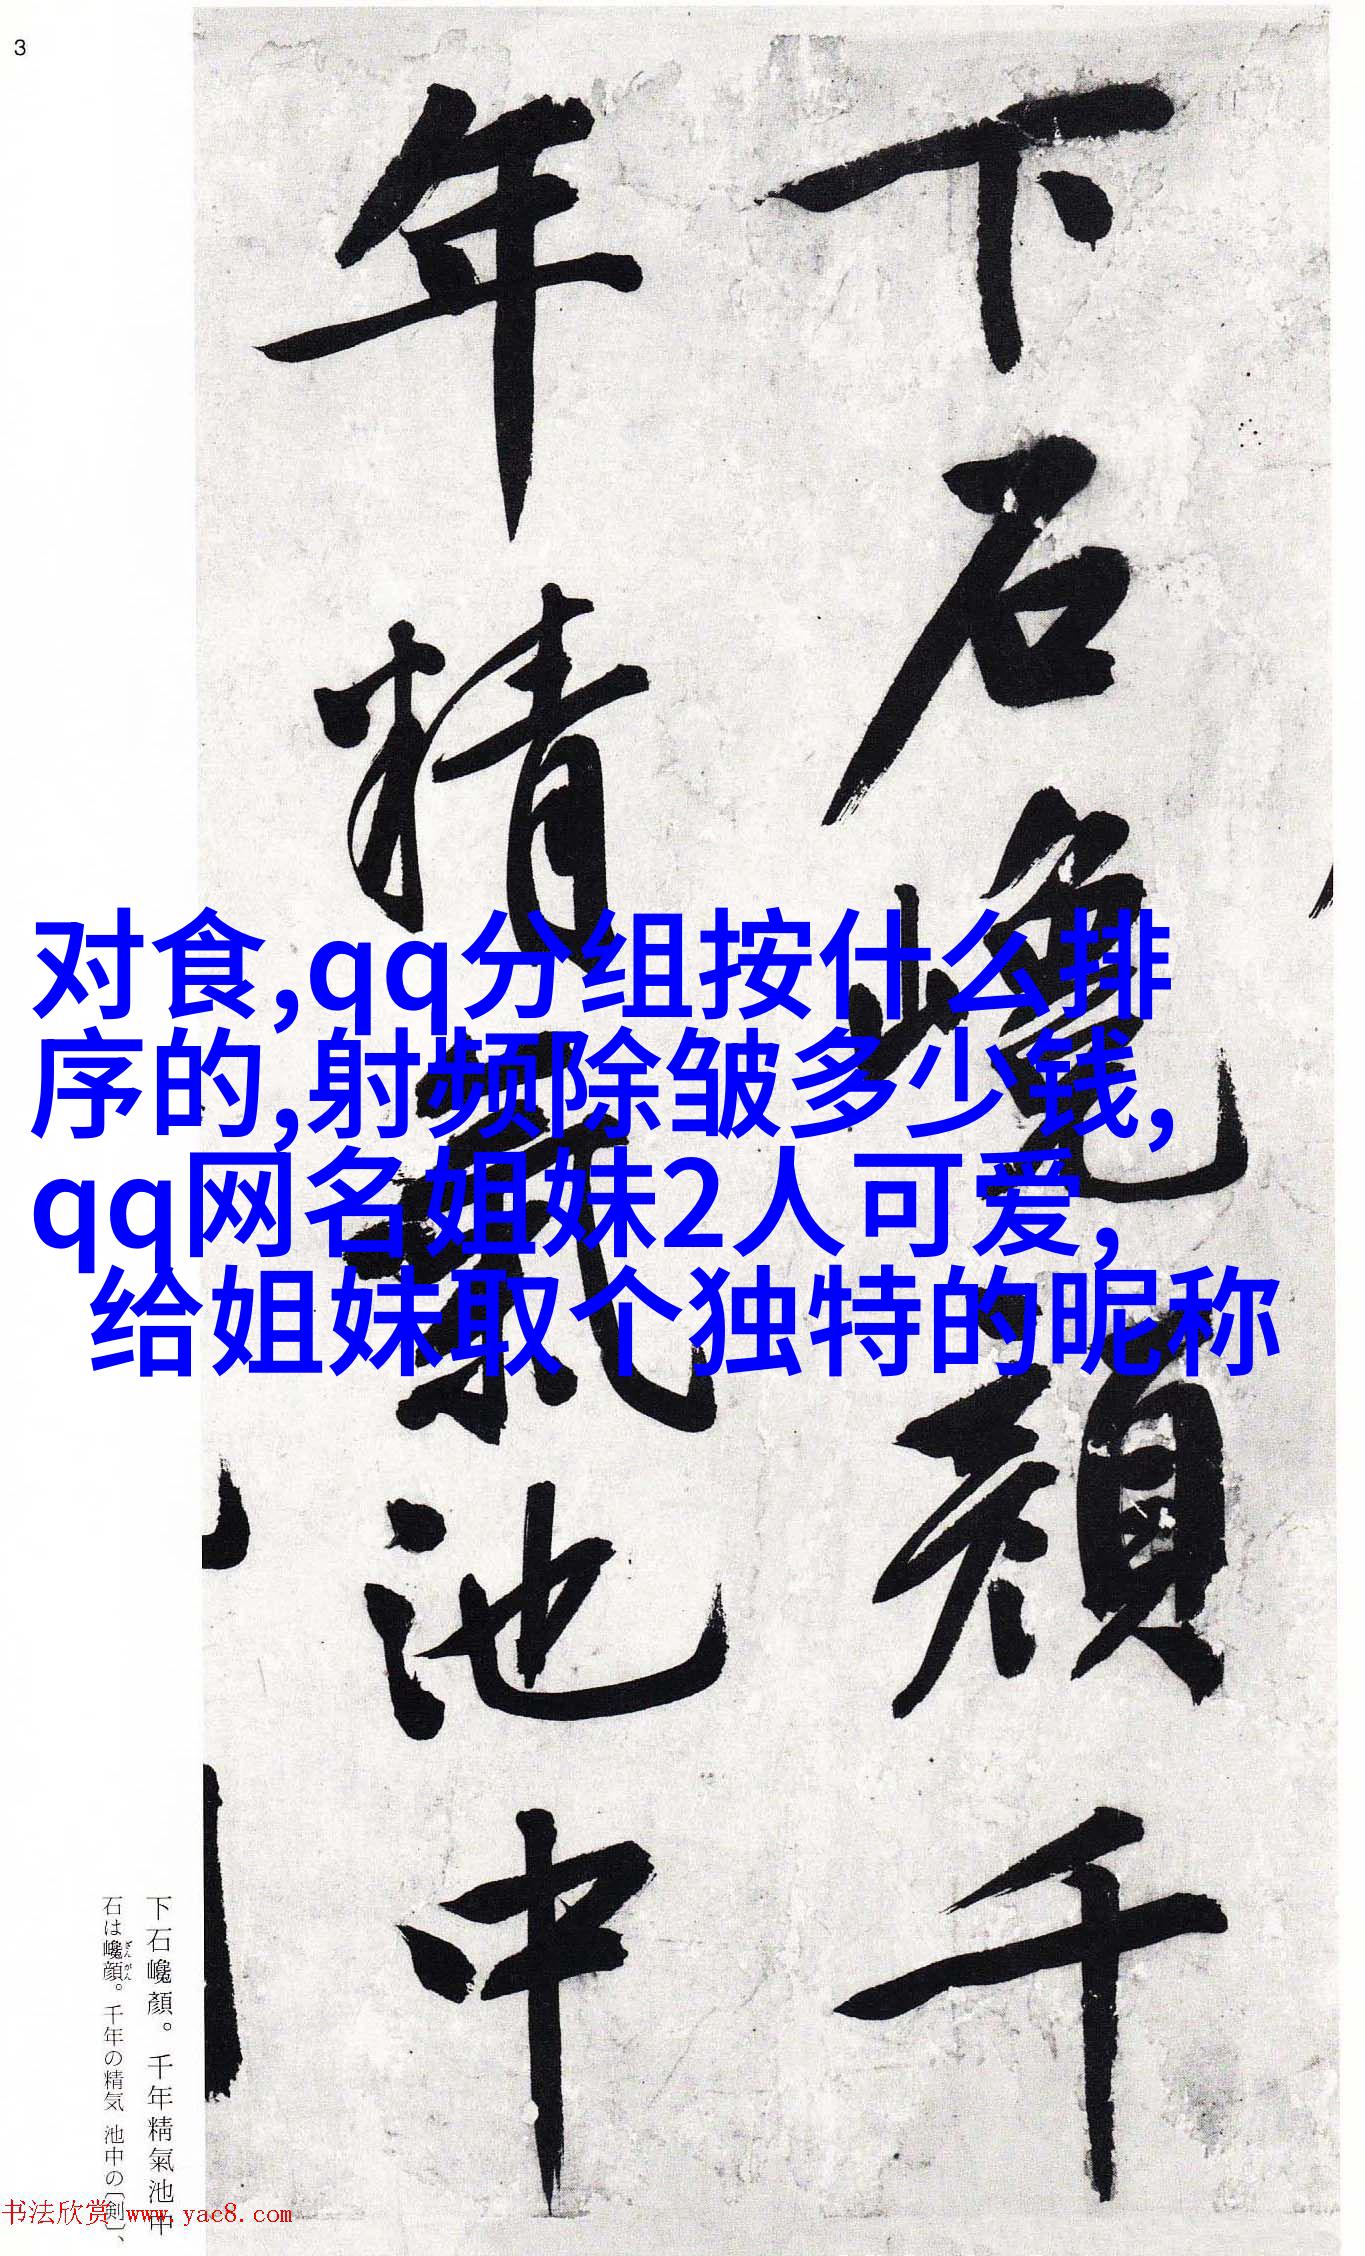 3
下石巉顏千
年精氣池中
对食,qq分组按什么排
序的,射频除皱多少钱,
qq网名姐妹2人可爱,
给姐妹取个独特的昵称
下石巉顏。千年精氣池中
石は巉顏。千年の精気 池中の〔剣〕、
ざんがん
书法欣赏 www.yac8.com